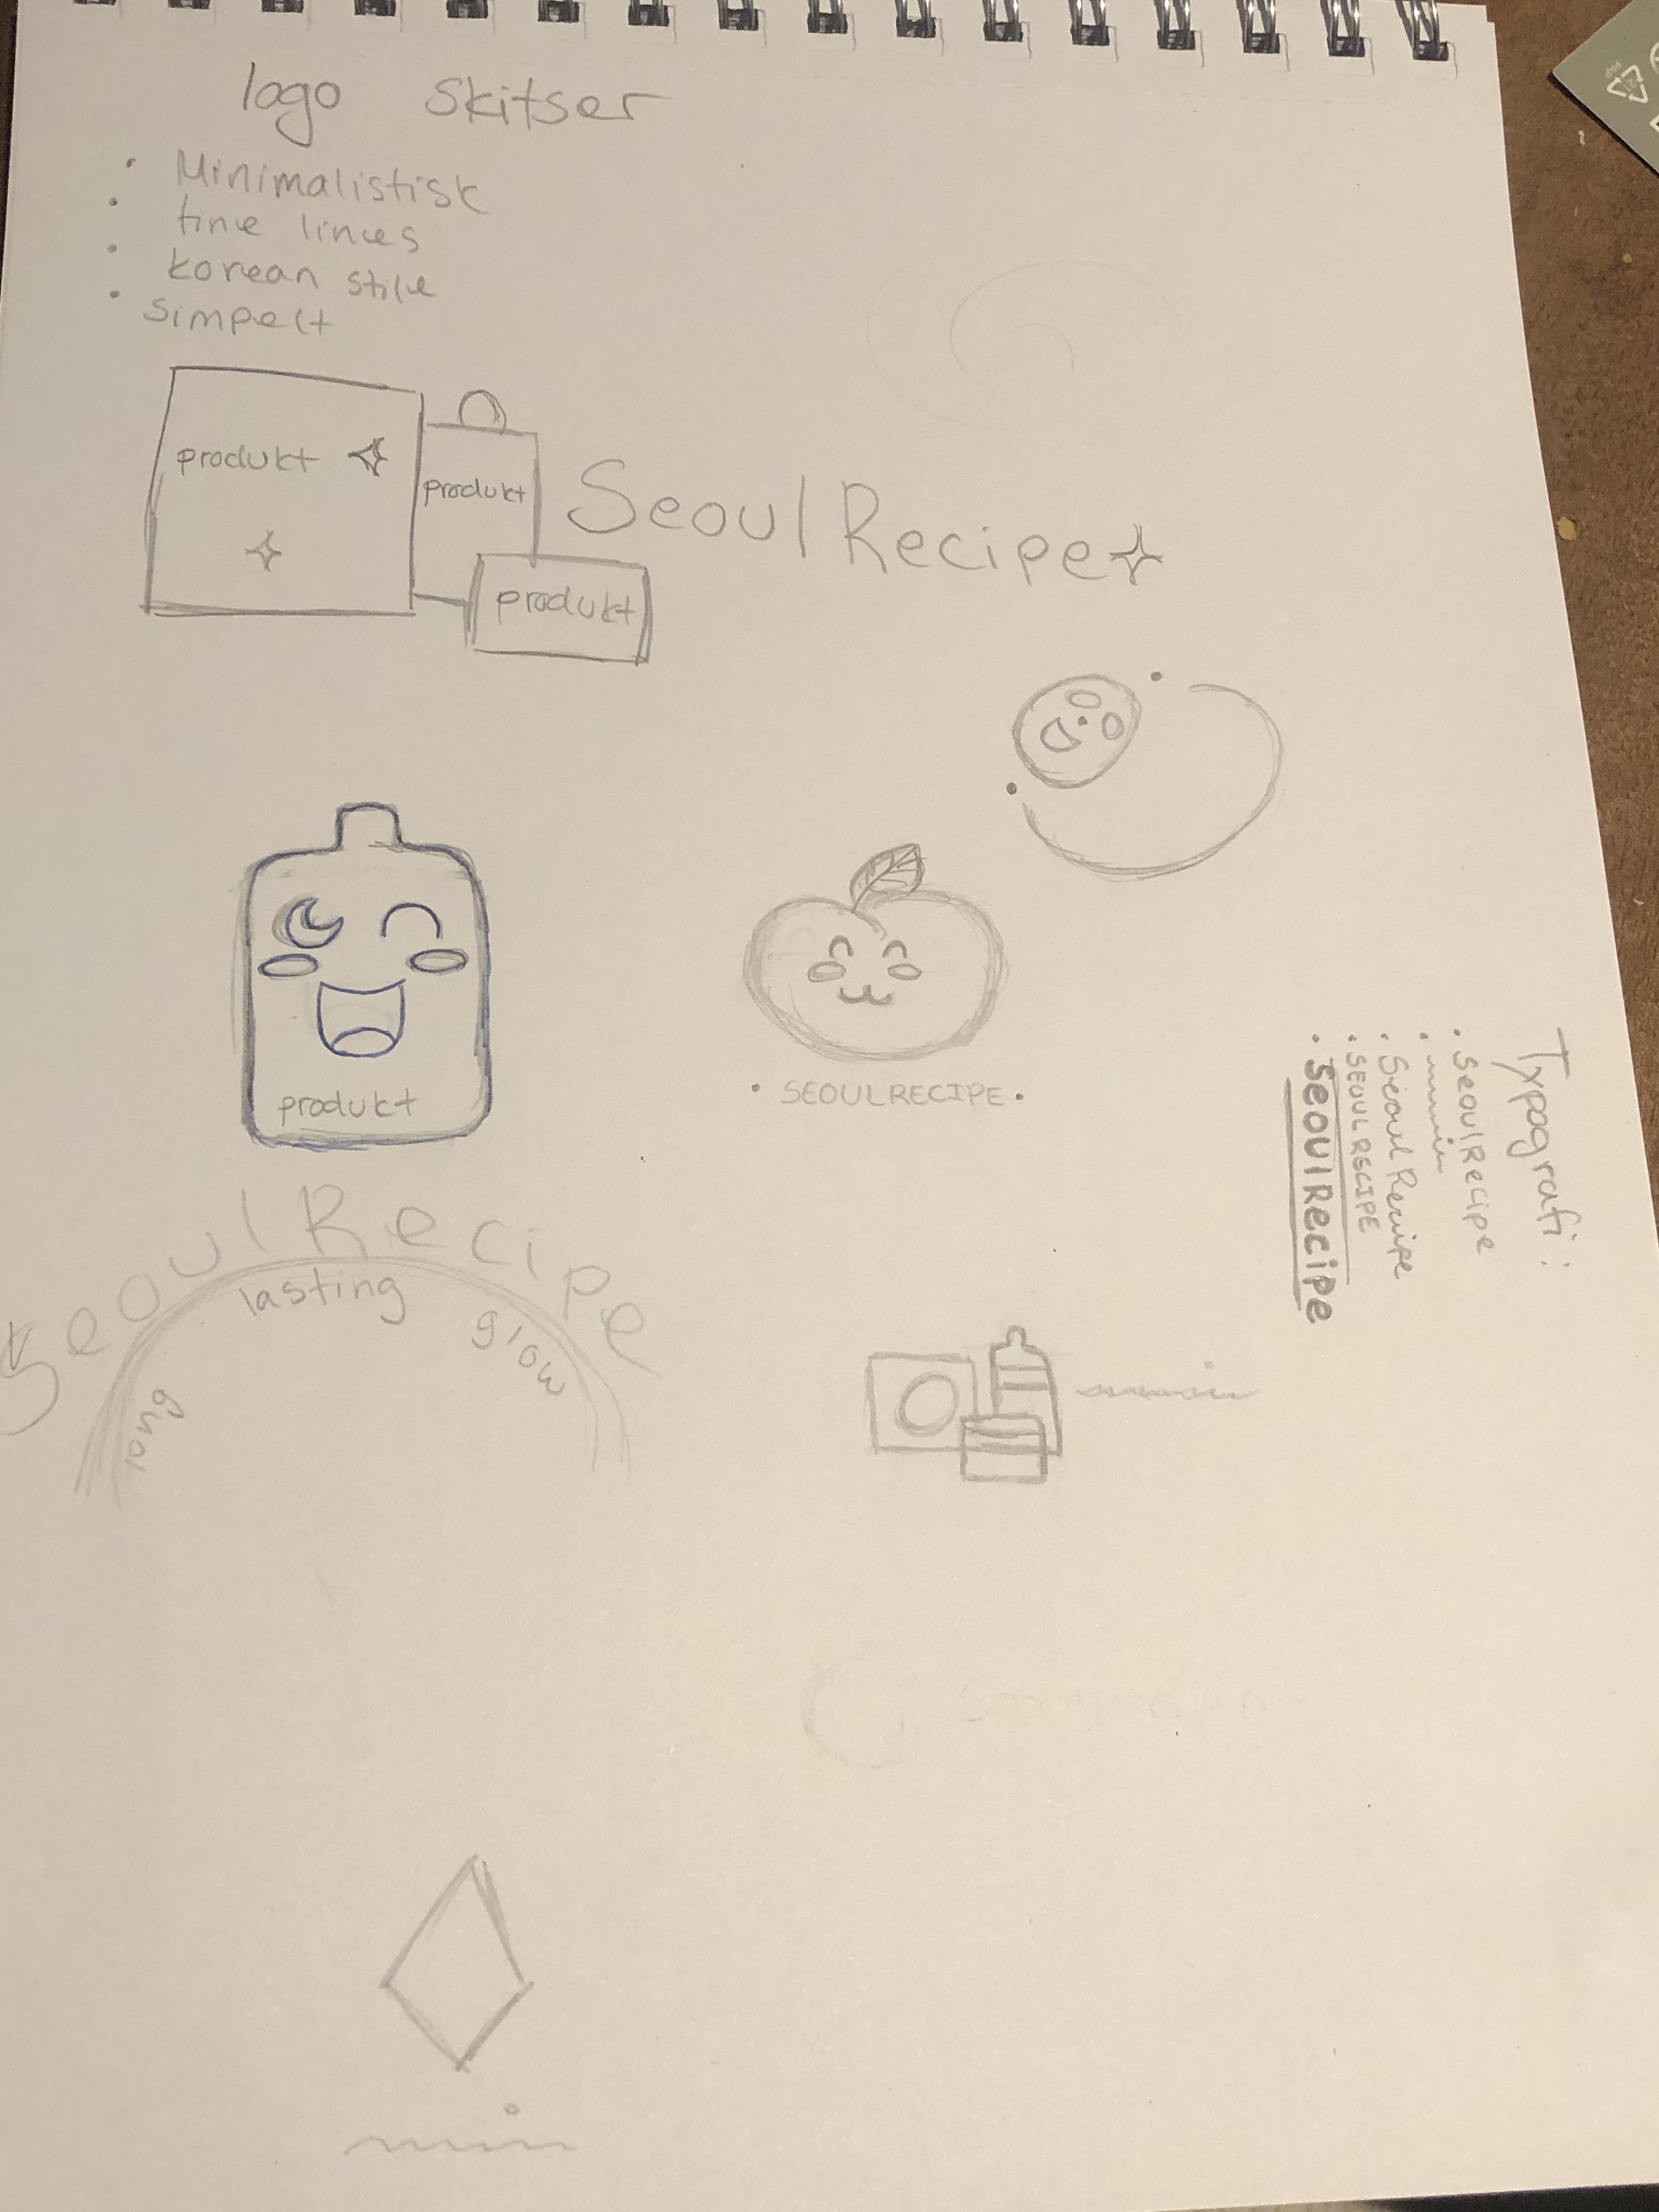 logo skitser
• Minimalistisk
• fine lines
• korean stile
• simpelt
produkt
produkt
produkt
SeoulRecipe
produkt
• SEOULRECIPE •
Typografi:
• SeoulRecipe
• Seoul Recipe
• SEOULRECIPE
• SeoulRecipe
SeoulRecipe
long lasting glow